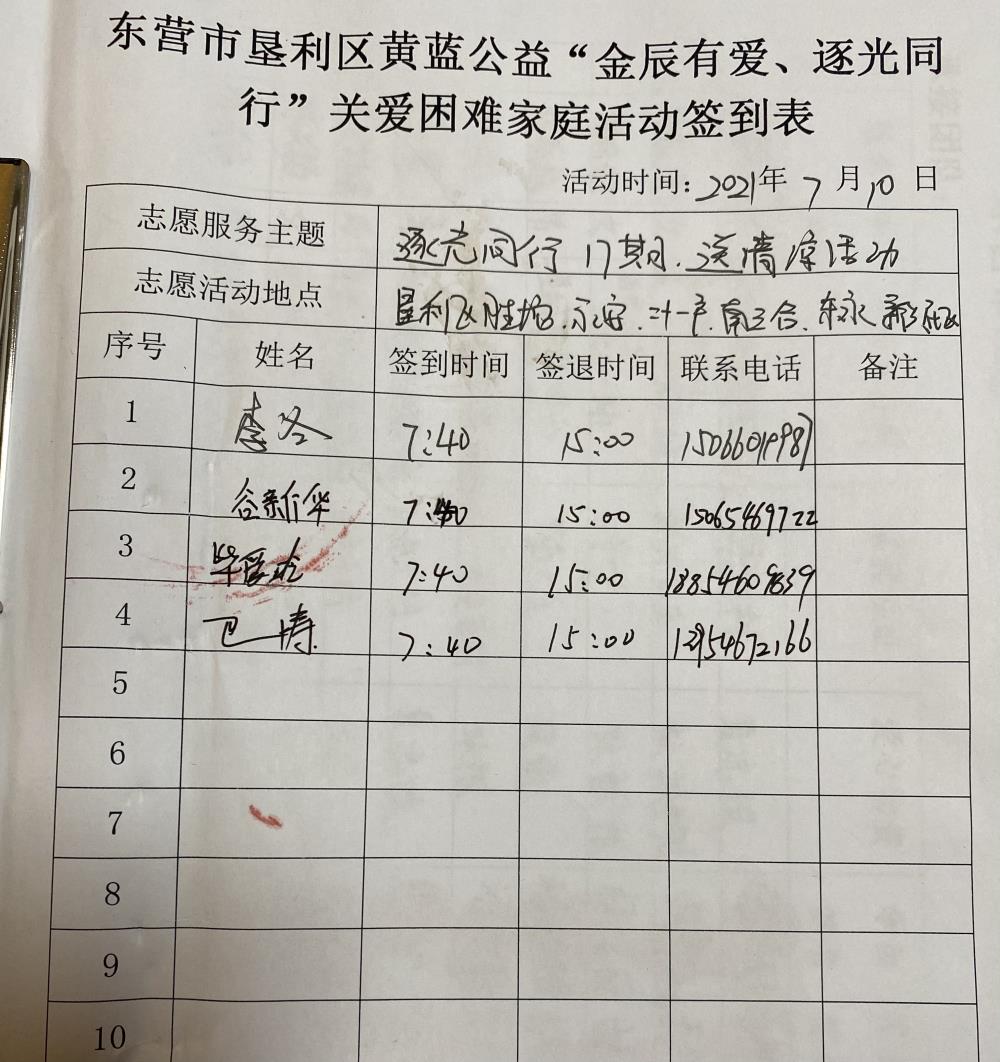 东营市垦利区黄蓝公益“金辰有爱、逐光同
行”关爱困难家庭活动签到表
活动时间：2021年 7 月 10 日
志愿服务主题 逐光同行 17期.送清凉活动
志愿活动地点 垦利区胜坨.永安.二十一户.南三合.东永
序号 姓名 签到时间 签退时间 联系电话 备注
1 李冬 7:40 15:00 15066019987
2 谷新华 7:40 15:00 15065469722
3 毕爱 7:40 15:00 18854609839
4 涛 7:40 15:00
5
6
7
8
9
10